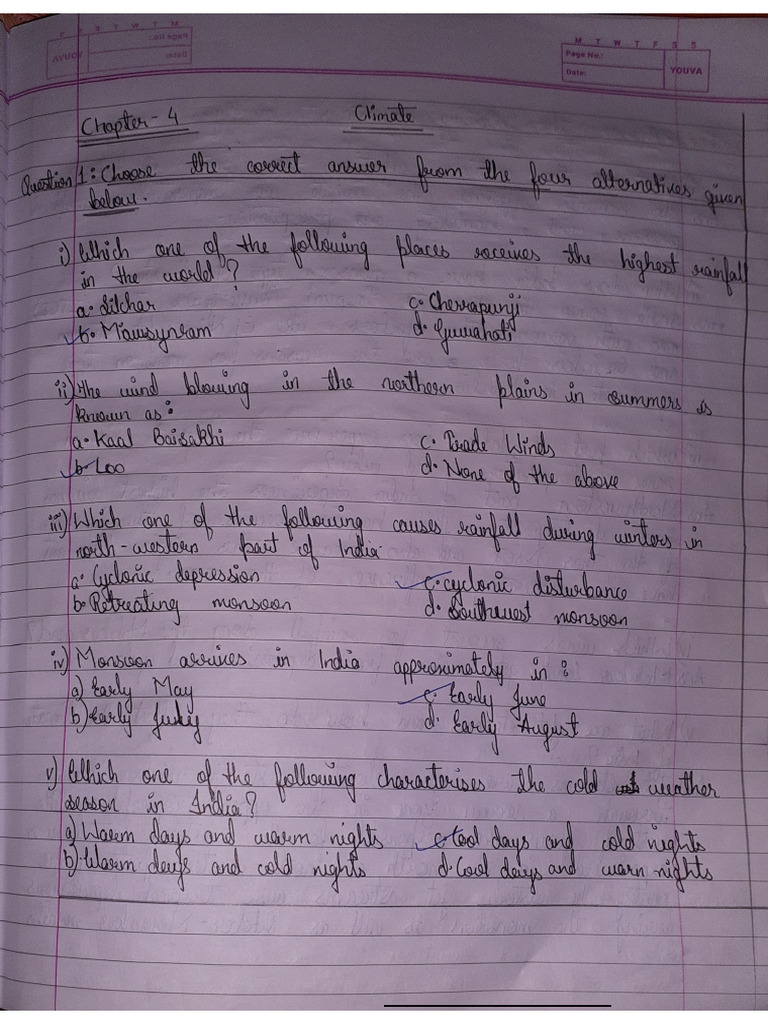 M T W T F S S
Page No.:
Date: YOUVA
Chapter-4 Climate
Question 1: Choose the correct answer from the four alternatives given
below.
i) Which one of the following places receives the highest rainfall
in the world?
a. Silchar c. Cherrapunji
b. Mawsynram d. Guwahati
ii) The wind blowing in the northern plains in summers is
known as:
a. Kaal Baisakhi c. Trade Winds
b. Loo d. None of the above
iii) Which one of the following causes rainfall during winters in
north-western part of India
a. Cyclonic depression c. cyclonic disturbance
b. Retreating monsoon d. Southwest monsoon
iv) Monsoon arrives in India approximately in:
a) Early May c. Early June
b) Early July d. Early August
v) Which one of the following characterises the cold weather
season in India?
a) Warm days and warm nights c. Cool days and cold nights
b) Warm days and cold nights d. Cool days and warn nights